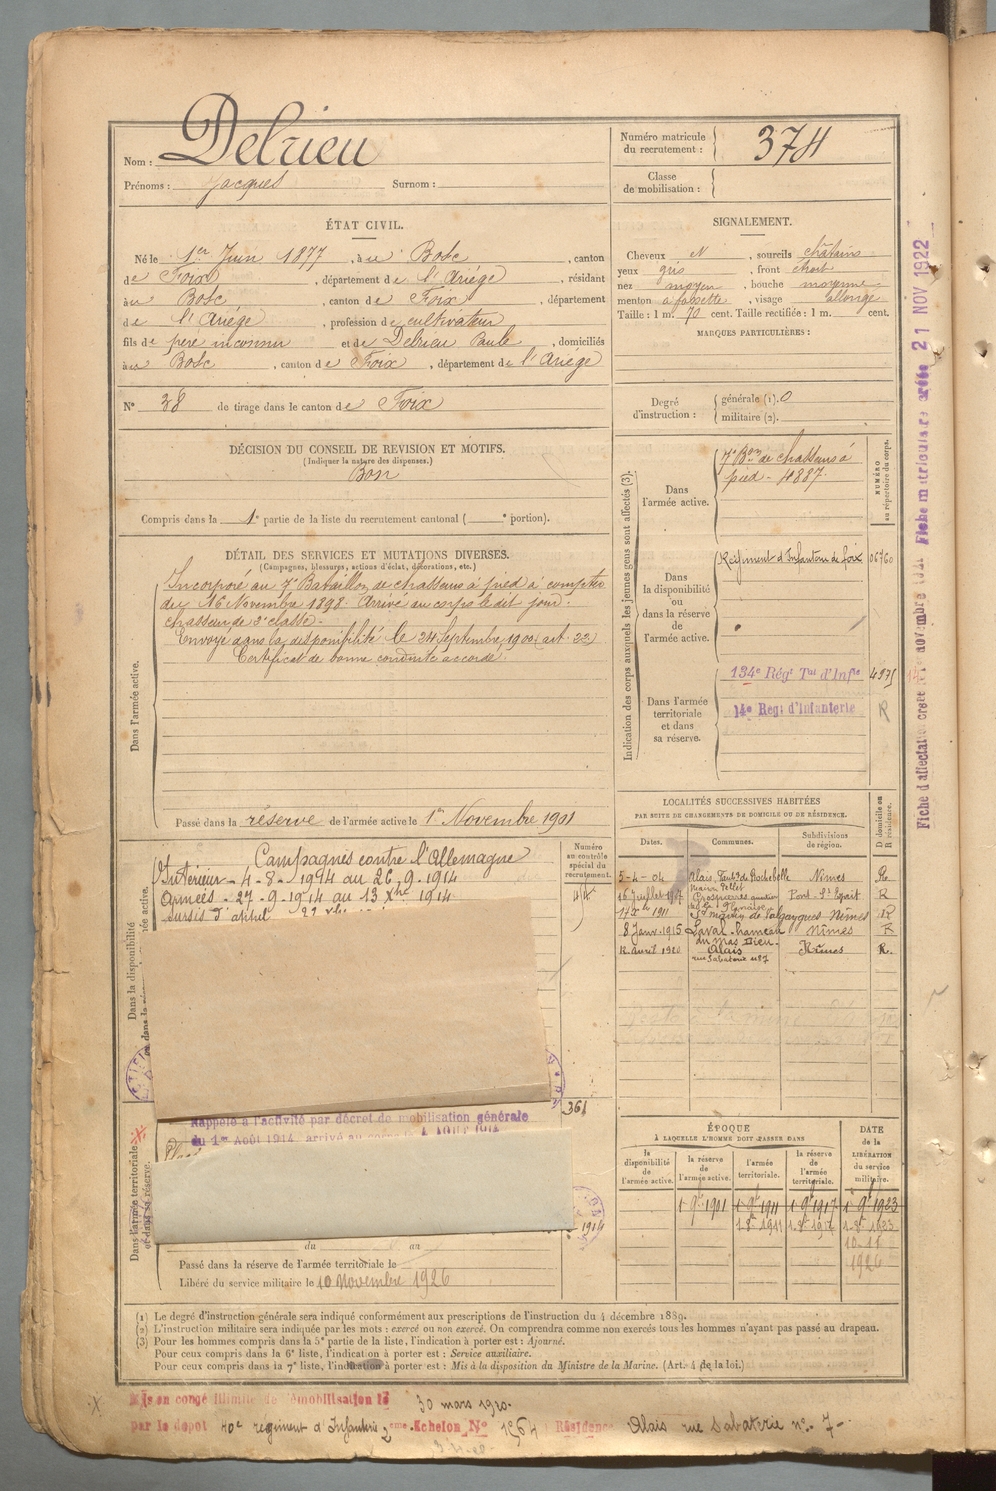 Nom : Delrieu
Prénoms : Jacques Surnom :
Numéro matricule du recrutement : 374
Classe de mobilisation :
ÉTAT CIVIL.
Né le 1er Juin 1877, à u Bosc, canton
de Foix, département de l'Ariège, résidant
à u Bosc, canton de Foix, département
de l'Ariège, profession de cultivateur
fils de père inconnu et de Delrieu Paule, domiciliés
à u Bosc, canton de Foix, département de l'Ariège
N° 38 de tirage dans le canton de Foix
SIGNALEMENT.
Cheveux N, sourcils châtains
yeux gris, front
nez moyen, bouche moyenne
menton à fossette, visage allongé
Taille : 1 m. 70 cent. Taille rectifiée : 1 m. cent.
MARQUES PARTICULIÈRES :
Degré d'instruction : générale (1). 0
militaire (2).
DÉCISION DU CONSEIL DE REVISION ET MOTIFS.
(Indiquer la nature des dispenses.)
Bon
Compris dans la 1e partie de la liste du recrutement cantonal ( e portion).
DÉTAIL DES SERVICES ET MUTATIONS DIVERSES.
(Campagnes, blessures, actions d'éclat, décorations, etc.)
Dans l'armée active.
Incorporé au 7e Bataillon de chasseurs à pied à compter
du 16 Novembre 1898. Arrivé au corps le dit jour.
chasseur de 2e classe.
Envoyé dans la disponibilité le 24 Septembre 1900 (art. 22)
Certificat de bonne conduite accordé.
Passé dans la réserve de l'armée active le 1er Novembre 1901
Indication des corps auxquels les jeunes gens sont affectés (3).
NUMÉRO au répertoire du corps.
Dans l'armée active.
7e Bon de chasseurs à
pied - 4887.
Dans la disponibilité ou dans la réserve de l'armée active.
Régiment d'Infanterie de foix 06760
Dans l'armée territoriale et dans sa réserve.
134e Régt Tal d'Infie 4975
14e Regt d'Infanterie R
LOCALITÉS SUCCESSIVES HABITÉES
PAR SUITE DE CHANGEMENTS DE DOMICILE OU DE RÉSIDENCE.
Dates. Communes. Subdivisions de région. D domicile ou R résidence.
5-4-04 Alais, Faubg de Rochebelle Nimes R
maison Pellet
16 Juillet Pont-St Esprit R
1911 St Martin de Valgaygues Nimes R
8 Janv. 1915 Laval-hameau Nîmes R
du Mas Dieu
12 Avril 1920 Alais Nîmes R.
rue Sabaterie n°7
Dans la disponibilité
Numéro au contrôle spécial du recrutement.
Campagnes contre l'Allemagne
Intérieur - 4-8-1914 au 26.9.1914
Armées - 27-9-1914 au 13 Xbre 1914
sursis d'appel
361
Rappelé à l'activité par décret de mobilisation générale
du 1er Août 1914, arrivé au corps le 4 AOUT 1914
Dans l'armée territoriale et dans sa réserve.
1914
du au
Passé dans la réserve de l'armée territoriale le
Libéré du service militaire le 10 Novembre 1926
ÉPOQUE
À LAQUELLE L'HOMME DOIT PASSER DANS
la disponibilité de l'armée active. la réserve de l'armée active. l'armée territoriale. la réserve de l'armée territoriale. DATE de la LIBÉRATION du service militaire.
1 9bre 1901 1 9bre 1911 1 9bre 1917 1 9bre 1923
10-11
1926
(1) Le degré d'instruction générale sera indiqué conformément aux prescriptions de l'instruction du 4 décembre 1889.
(2) L'instruction militaire sera indiquée par les mots : exercé ou non exercé. On comprendra comme non exercés tous les hommes n'ayant pas passé au drapeau.
(3) Pour les hommes compris dans la 5e partie de la liste, l'indication à porter est : Ajourné.
Pour ceux compris dans la 6e liste, l'indication à porter est : Service auxiliaire.
Pour ceux compris dans la 7e liste, l'indication à porter est : Mis à la disposition du Ministre de la Marine. (Art. 4 de la loi.)
Mis en congé illimité de démobilisation le 30 mars 1920.
par le dépôt 40e régiment d'Infanterie 2eme Echelon N° 1564 Résidence Alais rue Sabaterie n° 7-
21 NOV 1922